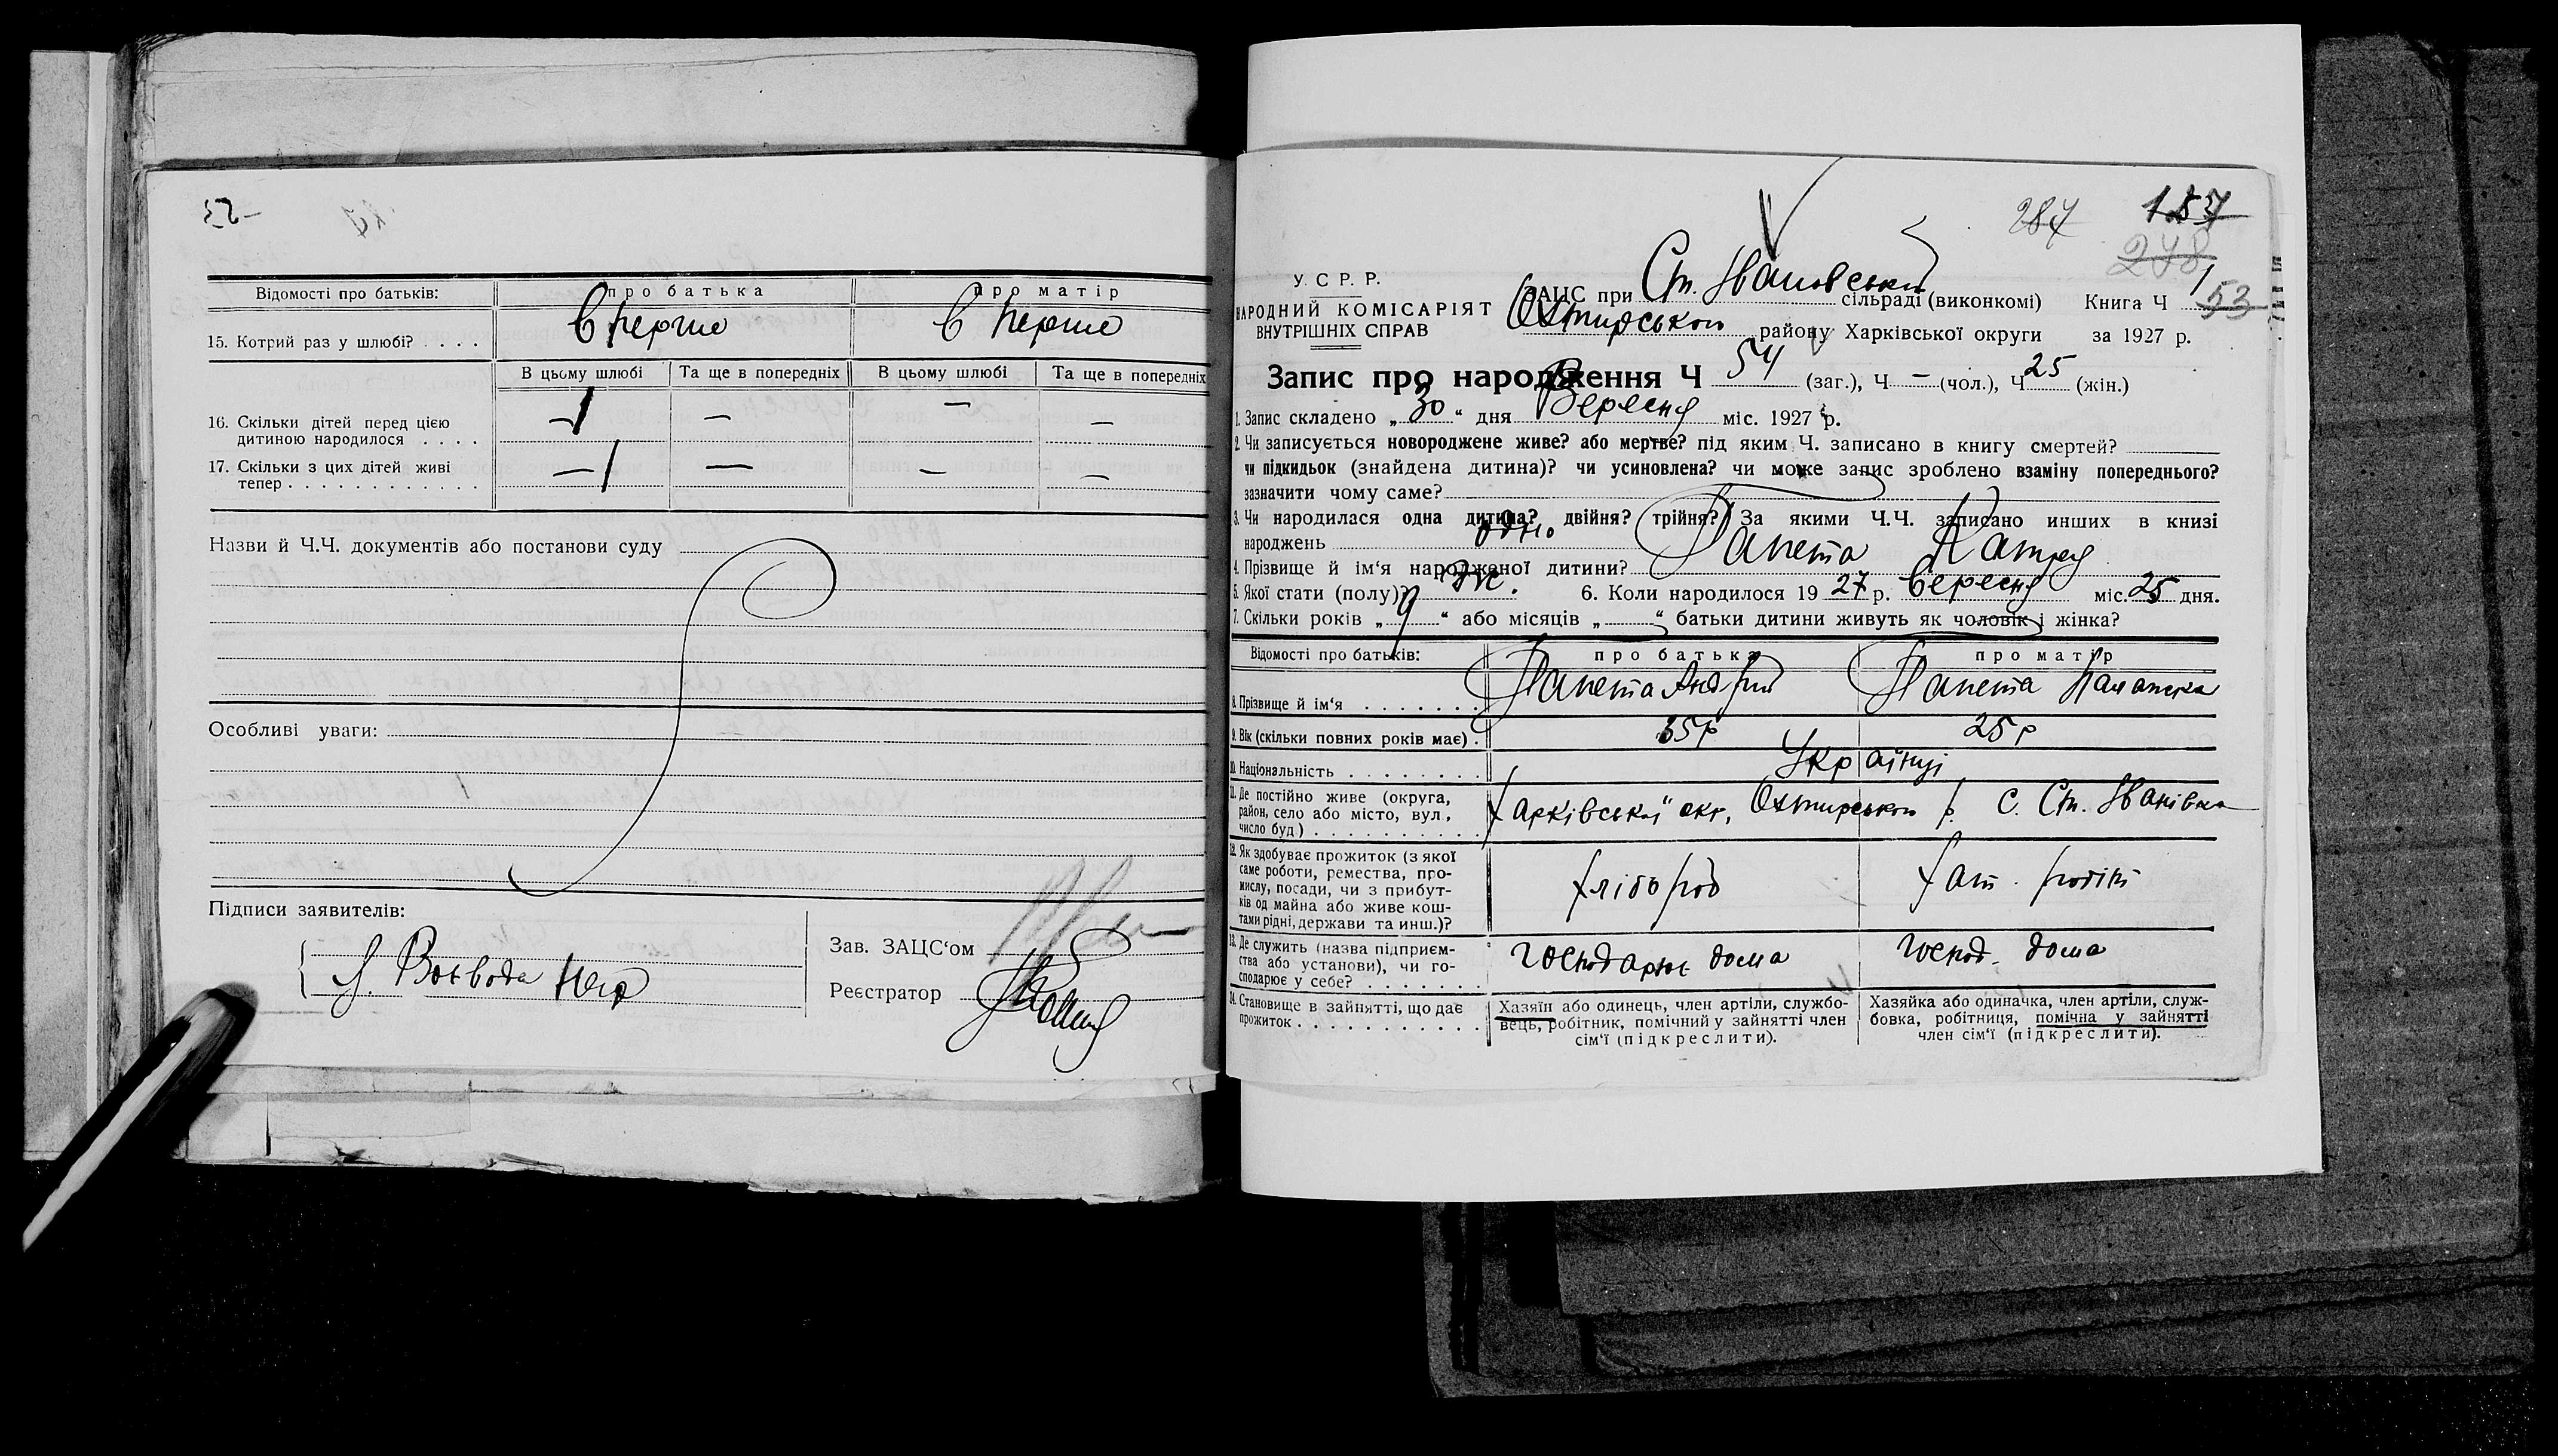 52-
Відомості про батьків: про батька про матір
15. Котрий раз у шлюбі? . . . . вперше в перше
В цьому шлюбі Та ще в попередніх В цьому шлюбі Та ще в попередніх
16. Скільки дітей перед цією
дитиною народилося . . . . 1 — — —
17. Скільки з цих дітей живі
тепер . . . . . . . . . . . . — 1 — — —
Назви й Ч.Ч. документів або постанови суду
Особливі уваги:
Підписи заявителів:
Зав. ЗАЦС‘ом
Реєстратор
284 157
248
У. С. Р. Р.
НАРОДНИЙ КОМІСАРІЯТ
ВНУТРІШНІХ СПРАВ
ЗАЦС при Ст. Івановський сільраді (виконкомі) Книга Ч 1
53
Охтирського району Харківської округи за 1927 р.
Запис про народження Ч 54 (заг.), Ч — (чол.), Ч 25 (жін.)
1. Запис складено „ 30 “ дня Вересня міс. 1927 р.
2. Чи записується новороджене живе? або мертве? під яким Ч. записано в книгу смертей?
чи підкидьок (знайдена дитина)? чи усиновлена? чи може запис зроблено взаміну попереднього?
зазначити чому саме?
3. Чи народилася одна дитина? двійня? трійня? За якими Ч.Ч. записано инших в книзі
народжень одно
4. Прізвище й ім‘я народженої дитини? Папета Катря
5. Якої стати (полу)? Жс. 6. Коли народилося 19 27 р. вересня міс. 25 дня.
7. Скільки років „ 9 “ або місяців „ — “ батьки дитини живуть як чоловік і жінка?
Відомості про батьків: про батька про матір
8. Прізвище й ім‘я . . . . . . . Папета Андрій Папета Палажка
9. Вік (скільки повних років має) . 35 р 25 р
10. Національність . . . . . . . . Українці
11. Де постійно живе (округа,
район, село або місто, вул.,
число буд.) . . . . . . . . . . . Харківської окр, Охтирського р. с. Ст. Іванівка
12. Як здобуває прожиток (з якої
саме роботи, ремества, про-
мислу, посади, чи з прибут-
ків од майна або живе кош-
тами рідні, держави та инш.)? хлібороб хат. робіт
13. Де служить (назва підприєм-
ства або установи), чи го-
сподарює у себе? . . . . . . . господарює дома господ. дома
14. Становище в зайнятті, що дає
прожиток . . . . . . . . . . .
Хазяїн або одинець, член артіли, службо-
вець, робітник, помічний у зайнятті член
сім‘ї (підкреслити).
Хазяйка або одиначка, член артіли, служ-
бовка, робітниця, помічна у зайнятті
член сім‘ї (підкреслити).